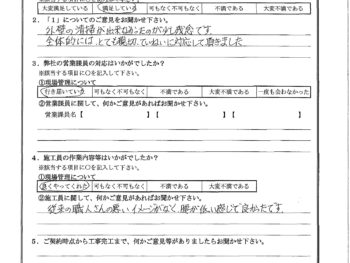 大変満足している 満足している 可もなく不可もなく 不満である 大変不満である
2．「1」についてのご意見をお聞かせ下さい。
外壁の清掃が出来なかったのが少し残念です。
全体的には、とても親切、ていねいに対応して頂きました
3．弊社の営業課員の対応はいかがでしたか？
※該当する項目に○を記入して下さい。
①現場管理について
行き届いていた 可もなく不可もなく 不満である 大変不満である 一度も会わなかった
②営業課員に関して、何かご意見があればお聞かせ下さい。
営業課員名【 】【 】【 】
4．施工員の作業内容等はいかがでしたか？
※該当する項目に○を記入して下さい。
①現場管理について
良くやってくれた 可もなく不可もなく 不満である 大変不満である
②施工員に関して、何かご意見があればお聞かせ下さい。
従来の職人さんの悪いイメージがなく、腰が低い感じで良かったです。
5．ご契約時点から工事完工まで、何かご意見等がありましたらお聞かせ下さい。